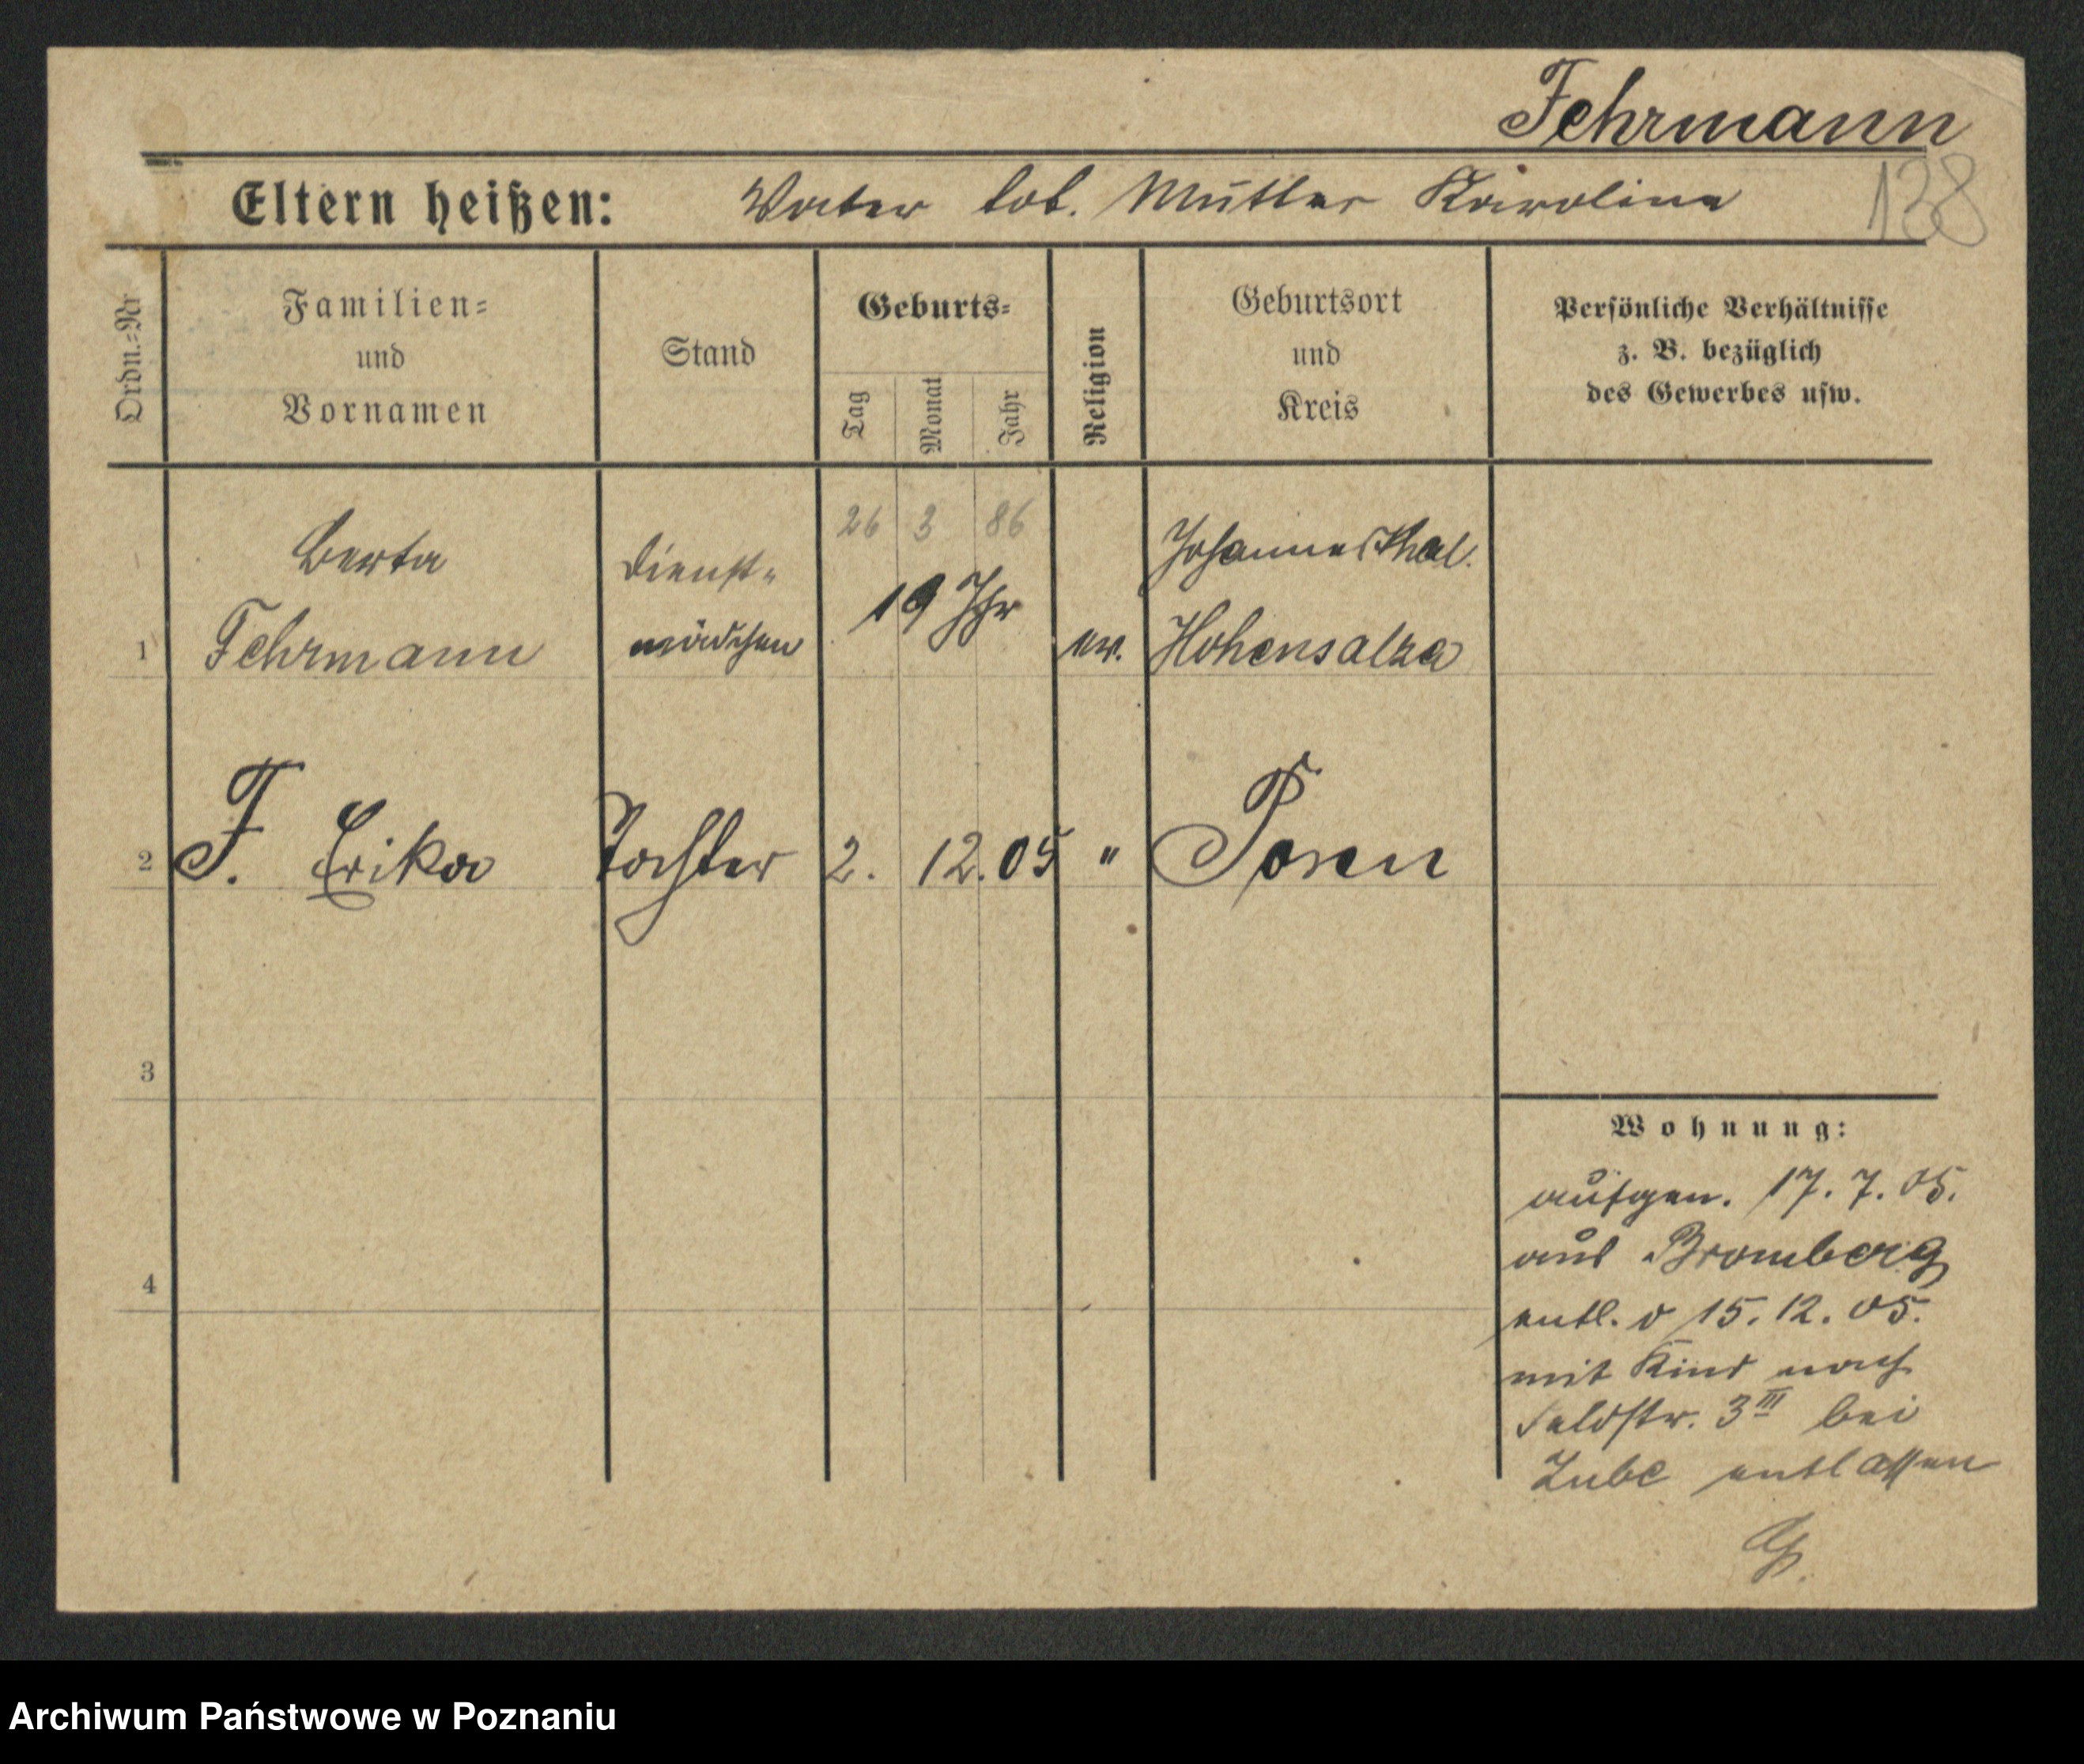 Fehrmann
138
Eltern heißen: Vater tot. Mutter Karoline
Ordn.=Nr
Familien=
und
Vornamen
Stand
Geburts=
Tag
Monat
Jahr
Religion
Geburtsort
und
Kreis
Persönliche Verhältnisse
z. B. bezüglich
des Gewerbes usw.
26 3 86
Berta Dienst= 19 Jhr Johannesthal.
1 Fehrmann mädchen ev. Hohensalza
2 F. Erika Tochter 2. 12. 05 " Posen
3
4
Wohnung:
aufgen. 17. 7. 05.
aus Bromberg
entl. d 15. 12. 05.
mit Kind nach
Feldstr. 3 III bei
Zube entlassen
Archiwum Państwowe w Poznaniu